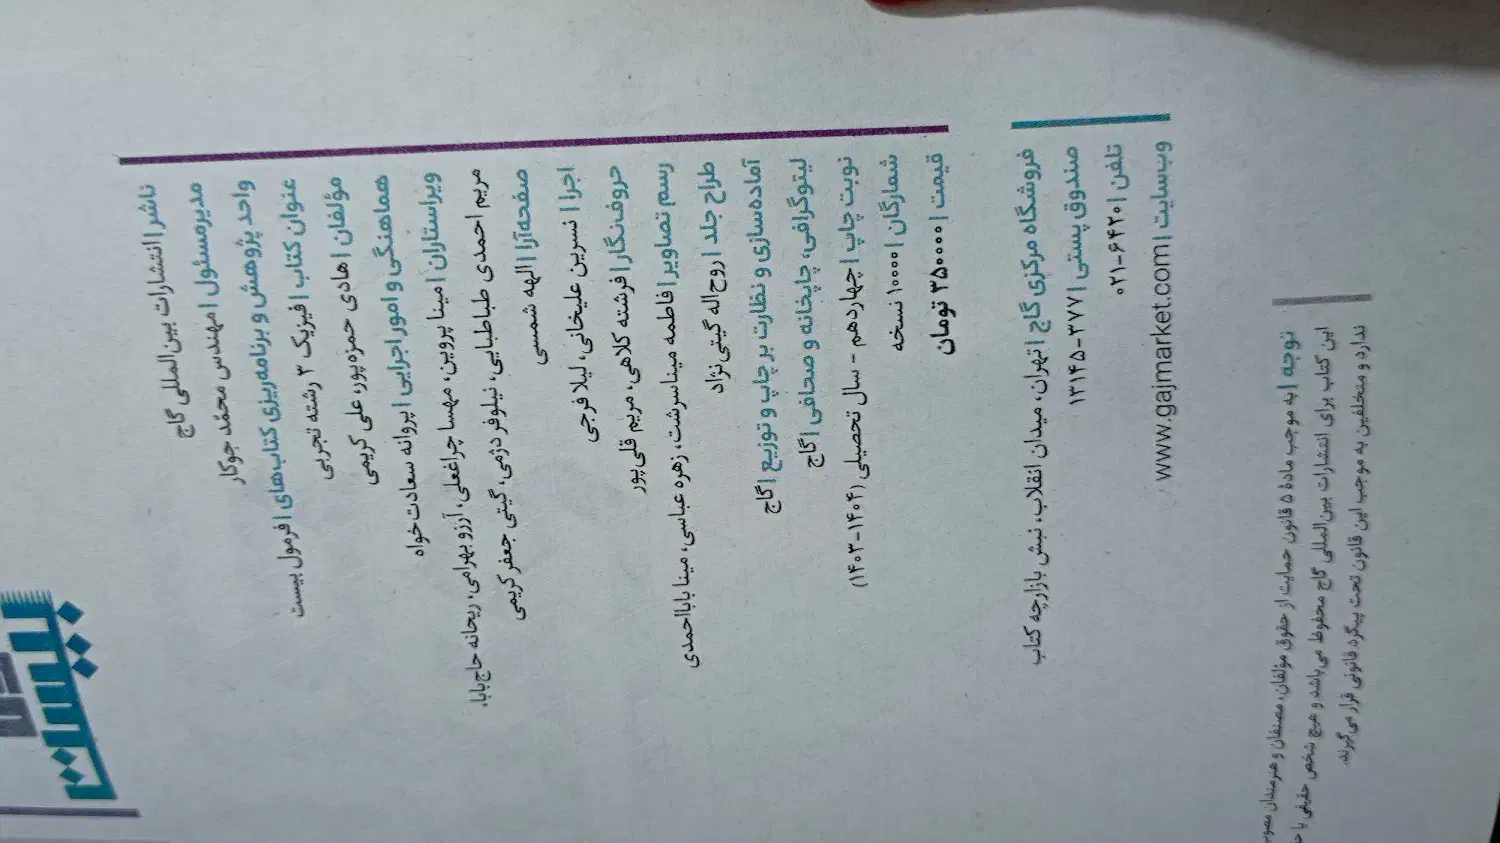 بیست
ناشر | انتشارات بین‌المللی گاج
مدیرمسئول | مهندس محمّد جوکار
واحد پژوهش و برنامه‌ریزی کتاب‌های | فرمول بیست
عنوان کتاب | فیزیک ۳ رشته تجربی
مؤلفان | هادی حمزه‌پور، علی کریمی
هماهنگی و امور اجرایی | پروانه سعادت‌خواه
ویراستاران | مینا پروین، مهسا چراغعلی، آرزو بهرامی، ریحانه حاج‌بابا،
مریم احمدی طباطبایی، نیلوفر دژمی، گیتی جعفر کریمی
صفحه‌آرا | الهه شمسی
اجرا | نسرین علیخانی، لیلا فرجی
حروف‌نگار | فرشته کلاهی، مریم قلی‌پور
رسم تصاویر | فاطمه میناسرشت، زهره عباسی، مینا بابااحمدی
طراح جلد | روح‌اله گیتی‌نژاد
آماده‌سازی و نظارت بر چاپ و توزیع | گاج
لیتوگرافی، چاپخانه و صحافی | گاج
نوبت چاپ | چهاردهم - سال تحصیلی (۱۴۰۴-۱۴۰۳)
شمارگان | ۱۰۰۰۰ نسخه
قیمت | ۳۵۰۰۰۰ تومان
فروشگاه مرکزی گاج | تهران، میدان انقلاب، نبش بازارچه کتاب
صندوق پستی | ۳۷۷-۱۳۱۴۵
تلفن | ۶۴۲۰-۰۲۱
وب‌سایت | www.gajmarket.com
توجه | به موجب مادهٔ ۵ قانون حمایت از حقوق مؤلفان، مصنفان و هنرمندان
این کتاب برای انتشارات بین‌المللی گاج محفوظ می‌باشد و هیچ شخص حقیقی یا
ندارد و متخلفین به موجب این قانون تحت پیگرد قانونی قرار می‌گیرند.